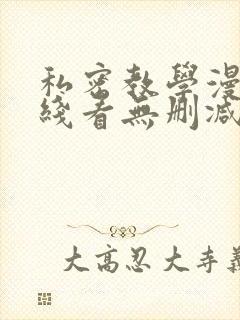 私密教學漫
綫看無刪減
大高忍大寺